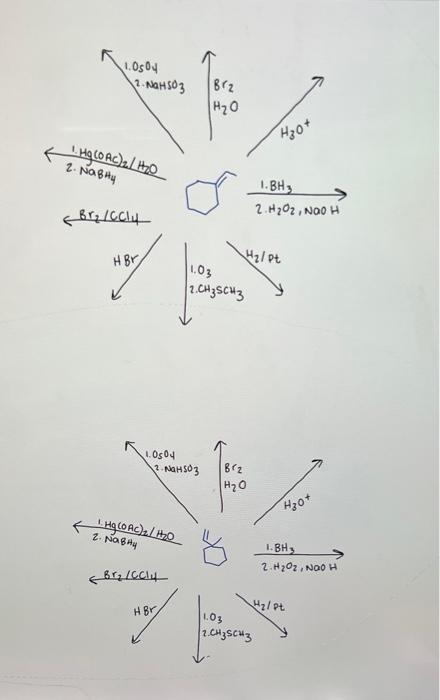 1.OsO4
2.NaHSO3
Br2
H2O
H3O+
1.Hg(OAc)2/H2O
2.NaBH4
1.BH3
2.H2O2, NaOH
Br2/CCl4
HBr
1.O3
2.CH3SCH3
H2/Pt
1.OsO4
2.NaHSO3
Br2
H2O
H3O+
1.Hg(OAc)2/H2O
2.NaBH4
1.BH3
2.H2O2, NaOH
Br2/CCl4
HBr
1.O3
2.CH3SCH3
H2/Pt